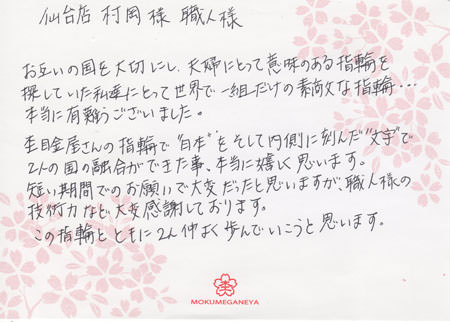 仙台店 村岡様 職人様
お互いの国を大切にし、夫婦にとって意味のある指輪を
探していた私達にとって世界で一組だけの素敵な指輪・・・
本当に有難うございました。
杢目金屋さんの指輪で“日本”をそして内側に刻んだ“文字”で
2人の国の融合ができた事、本当に嬉しく思います。
短い期間でのお願いで大変だったと思いますが、職人様の
技術力など大変感謝しております。
この指輪とともに2人仲よく歩んでいこうと思います。
杢
MOKUMEGANEYA